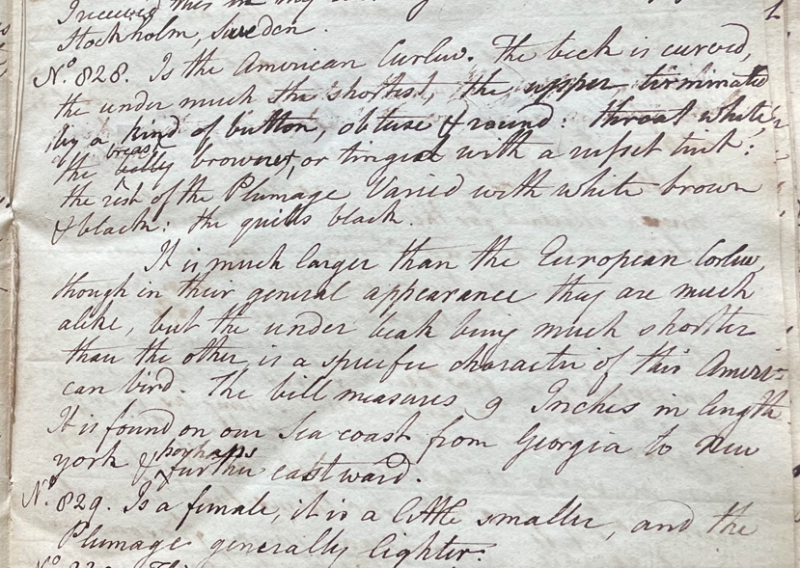 Received this in my
Stockholm, Sweden.
No. 828. Is the American Curlew. The beek is curved,
the under much the shortest, the upper terminated
by a kind of button, obtuse & round: throat white,
breast
the belly brownest, or tinged with a russet tint:
the rest of the Plumage Varied with white brown
& black: the quills black.
It is much larger than the European Corlew,
though in their general appearance they are much
alike, but the under beak being much shorter
than the other is a specific character of this Ameri-
can bird. The bill measures 9 Inches in length.
It is found on our Sea coast from Georgia to New
perhaps
york & further eastward.
No. 829. Is a female, it is a little smaller, and the
Plumage generally lighter.